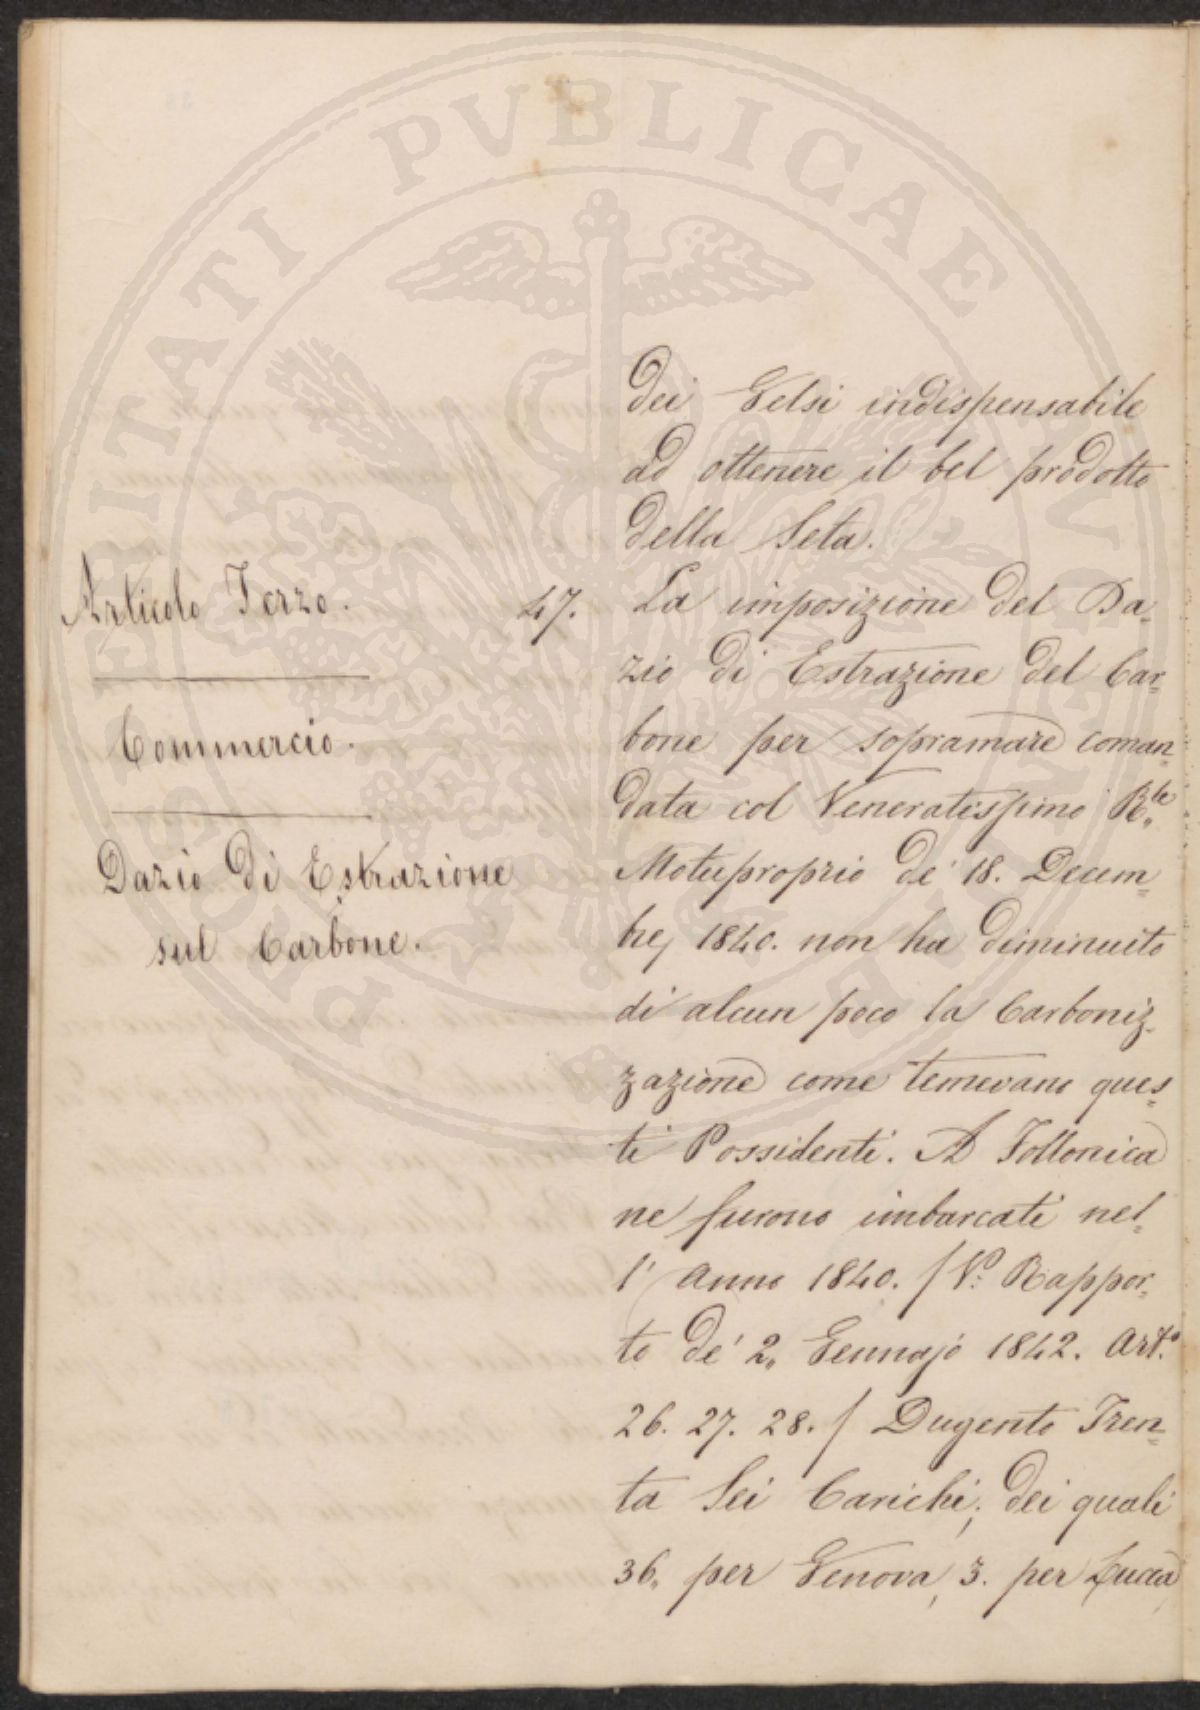 dei Gelsi indispensabile
ad ottenere il bel prodotto
della Seta.
Articolo Terzo.
Commercio.
Dazio di Estrazione
sul Carbone.
47. La imposizione del Da-
zio di Estrazione del Car=
bone per sopramare coman=
data col Veneratissimo R.le
Motuproprio de' 18. Decem=
bre 1840. non ha diminuito
di alcun poco la Carboniz=
zazione come temevano ques=
ti Possidenti. A Follonica
ne furono imbarcati nel=
l' Anno 1840. / V.o Rappor=
to de' 2. Gennajo 1842. Art.o
26. 27. 28. / Dugento Tren=
ta Sei Carichi; dei quali
36. per Genova, 3. per Lucca,
PROSPERITATI PVBLICAE